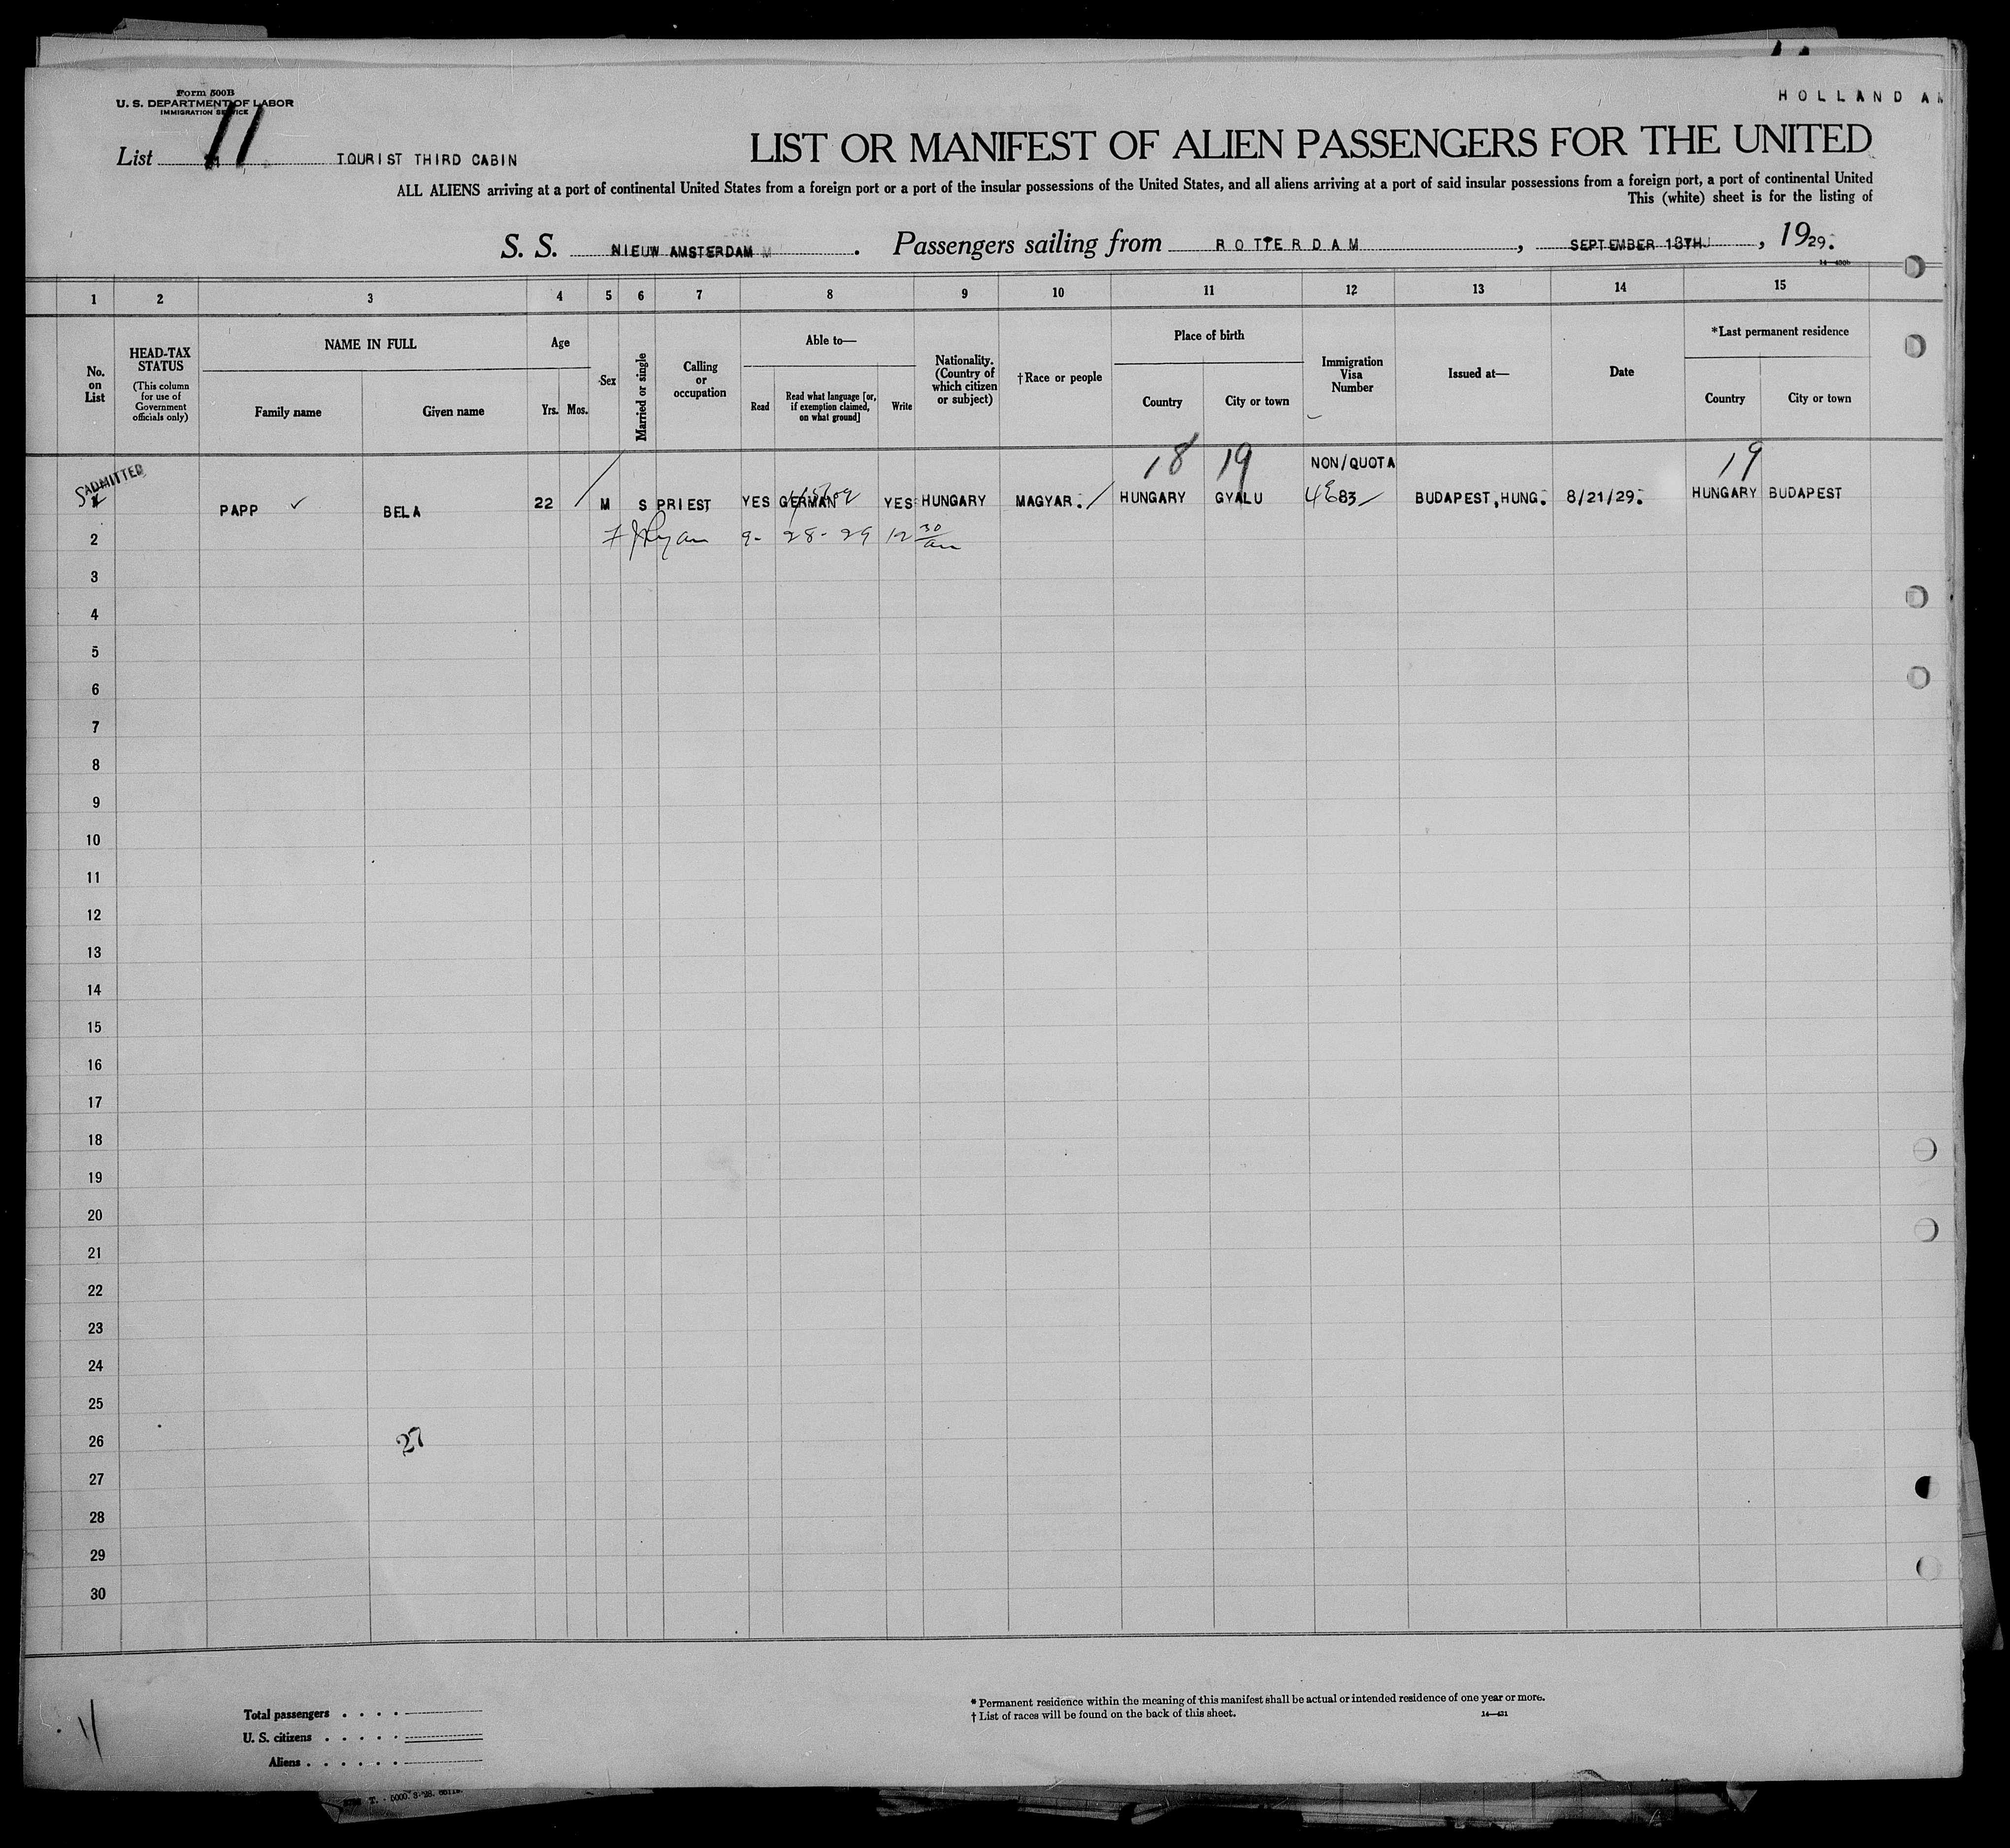 HOLLAND AM
Form 500B
U. S. DEPARTMENT OF LABOR
IMMIGRATION SERVICE
List 11 TOURIST THIRD CABIN
LIST OR MANIFEST OF ALIEN PASSENGERS FOR THE UNITED
ALL ALIENS arriving at a port of continental United States from a foreign port or a port of the insular possessions of the United States, and all aliens arriving at a port of said insular possessions from a foreign port, a port of continental United
This (white) sheet is for the listing of
S. S. NIEUW AMSTERDAM. Passengers sailing from ROTTERDAM, SEPTEMBER 18TH, 1929.
1 2 3 4 5 6 7 8 9 10 11 12 13 14 15
No. on List
HEAD-TAX STATUS
(This column for use of Government officials only)
NAME IN FULL
Family name Given name
Age
Yrs. Mos.
Sex
Married or single
Calling or occupation
Able to—
Read
Read what language [or, if exemption claimed, on what ground]
Write
Nationality. (Country of which citizen or subject)
†Race or people
Place of birth
Country City or town
Immigration Visa Number
Issued at—
Date
*Last permanent residence
Country City or town
18 19 NON/QUOTA 19
ADMITTED
PAPP ✓ BELA 22 M S PRIEST YES GERMAN YES HUNGARY MAGYAR. HUNGARY GYALU 83 BUDAPEST, HUNG. 8/21/29. HUNGARY BUDAPEST
2 Ryan 9-28-29 12 30 am
3
4
5
6
7
8
9
10
11
12
13
14
15
16
17
18
19
20
21
22
23
24
25
26 27
27
28
29
30
11
Total passengers . . . .
U. S. citizens . . . . .
Aliens . . . . . .
* Permanent residence within the meaning of this manifest shall be actual or intended residence of one year or more.
† List of races will be found on the back of this sheet.
14—431